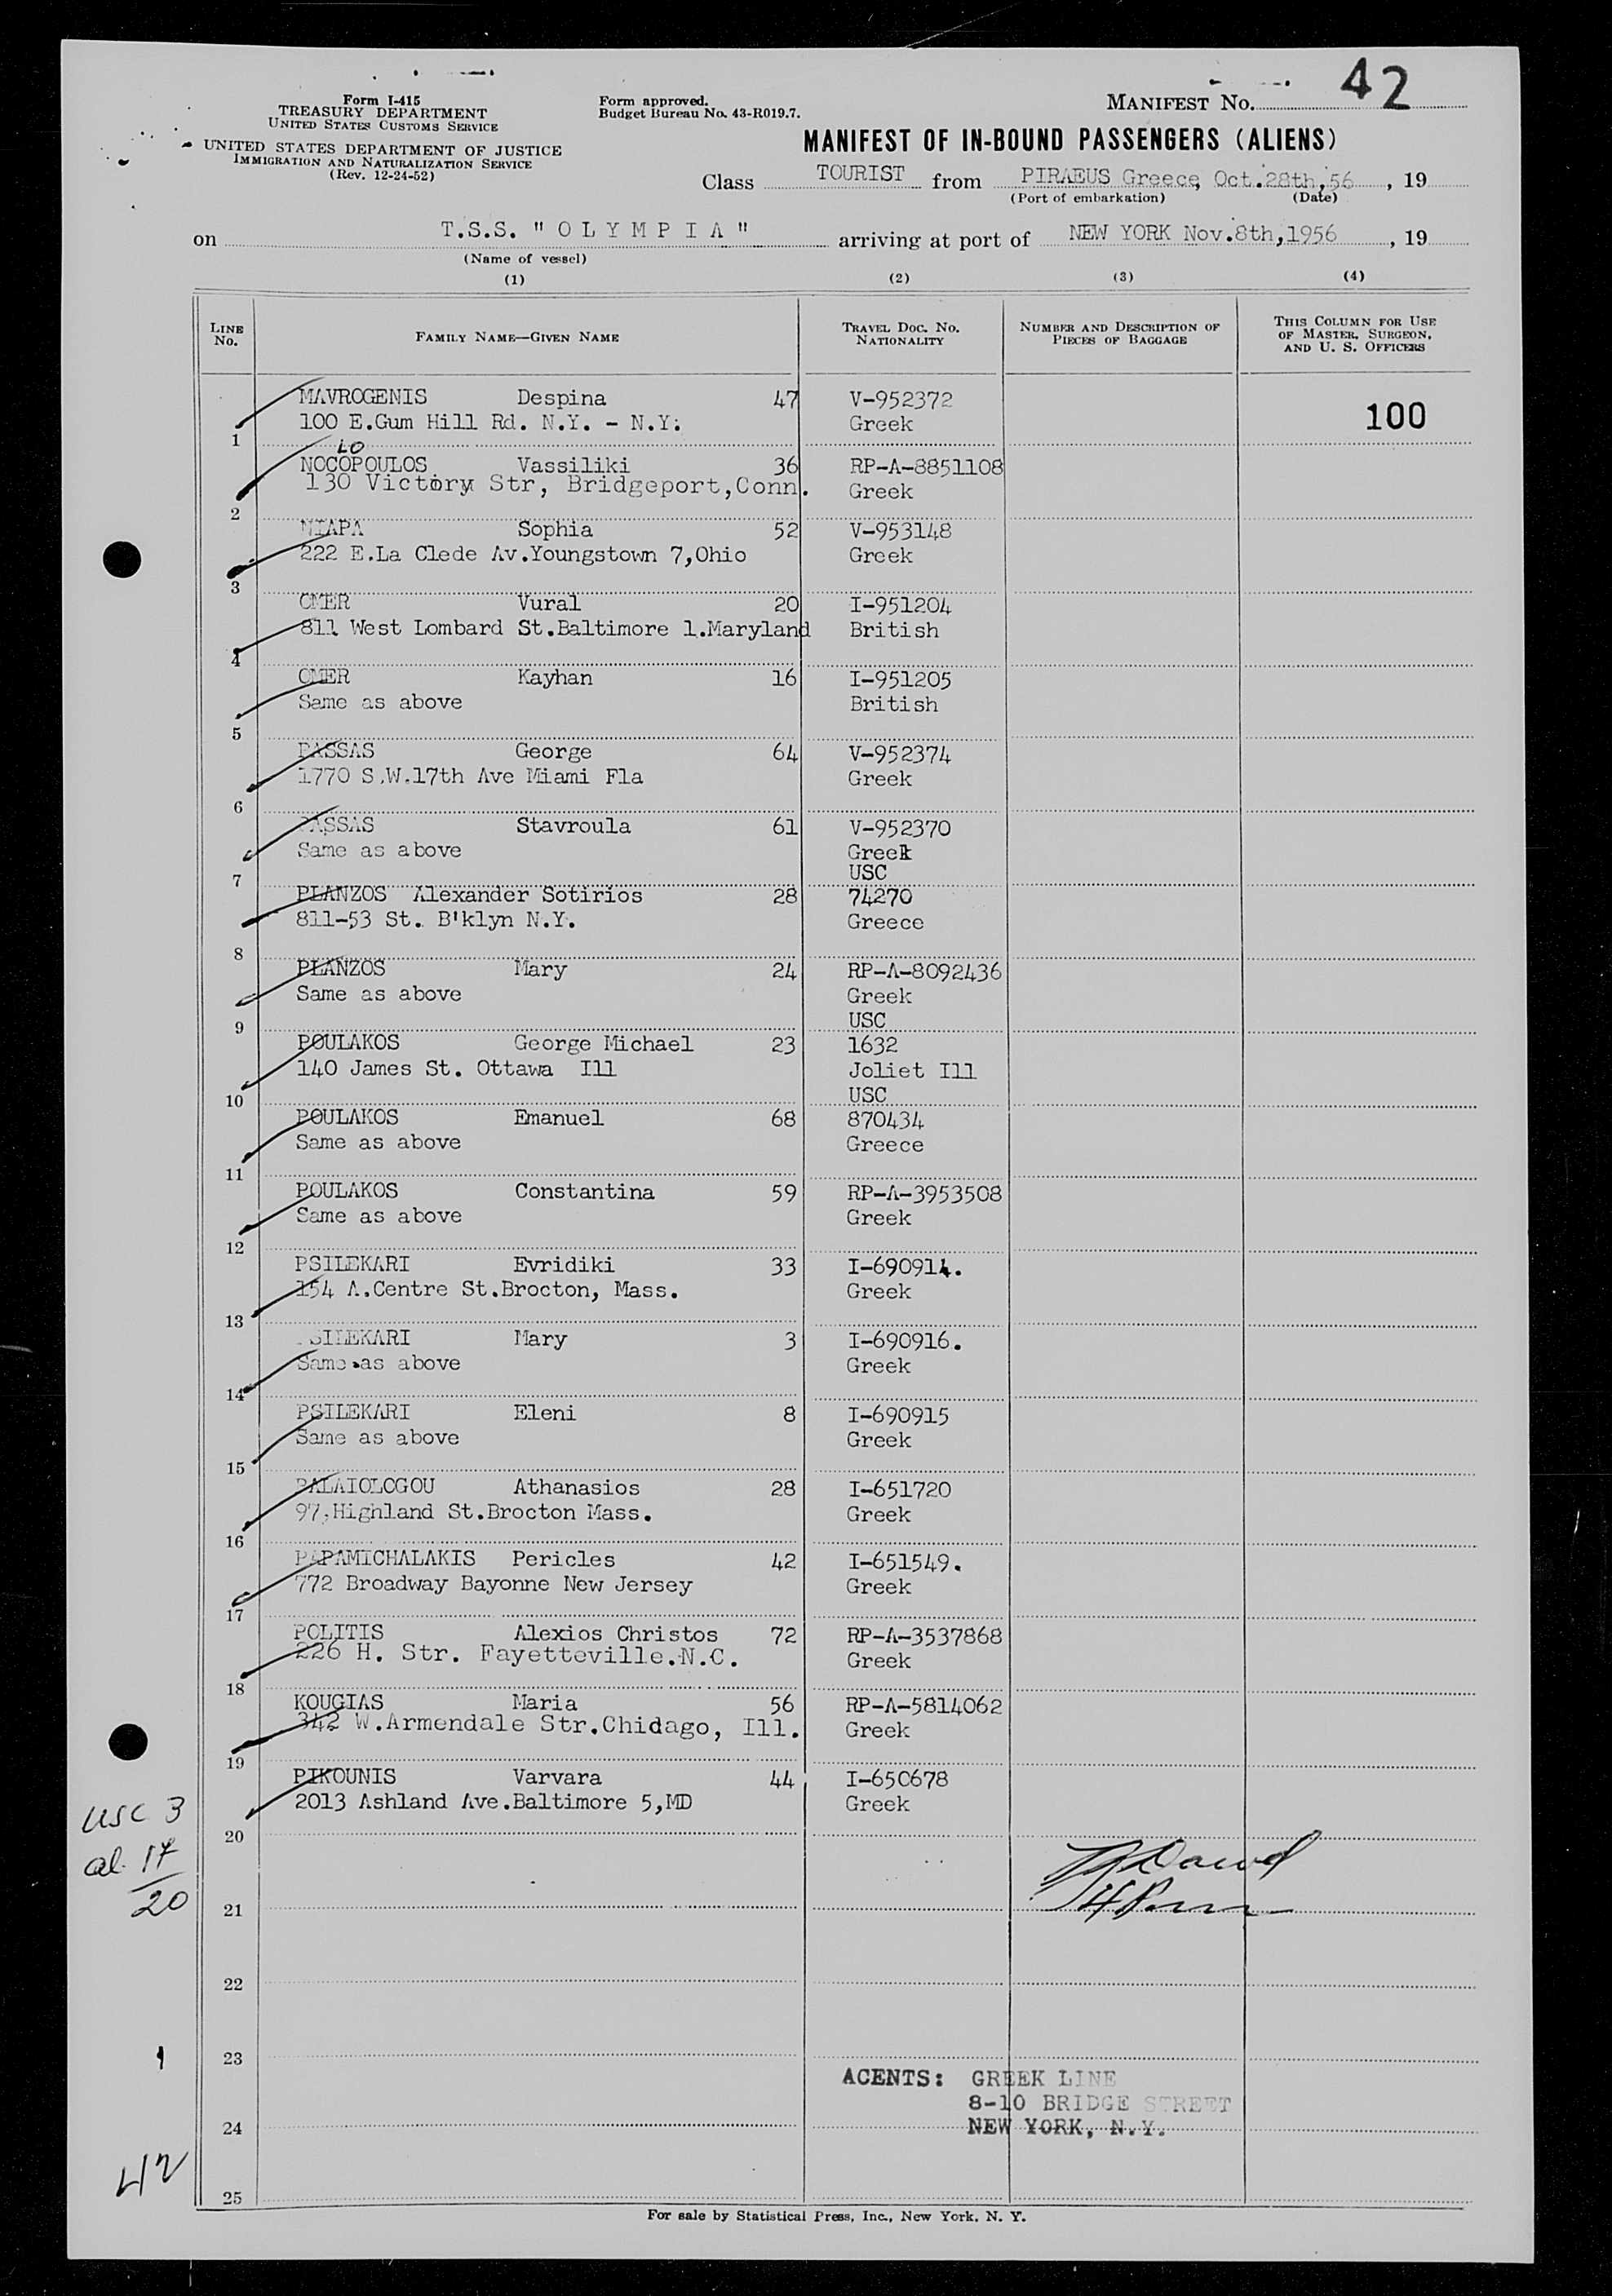 42
Form I-415
TREASURY DEPARTMENT
UNITED STATES CUSTOMS SERVICE
UNITED STATES DEPARTMENT OF JUSTICE
IMMIGRATION AND NATURALIZATION SERVICE
(Rev. 12-24-52)
Form approved.
Budget Bureau No. 43-R019.7.
MANIFEST No.
MANIFEST OF IN-BOUND PASSENGERS (ALIENS)
Class TOURIST from PIRAEUS Greece, Oct.28th,56, 19
(Port of embarkation) (Date)
on T.S.S. " O L Y M P I A " arriving at port of NEW YORK Nov.8th,1956, 19
(Name of vessel)
(1) (2) (3) (4)
LINE No. FAMILY NAME—GIVEN NAME TRAVEL DOC. No. NATIONALITY NUMBER AND DESCRIPTION OF PIECES OF BAGGAGE THIS COLUMN FOR USE OF MASTER, SURGEON, AND U. S. OFFICERS
MAVROGENIS Despina 47 V-952372
100 E.Gum Hill Rd. N.Y. - N.Y. Greek 100
1
LO
NOCOPOULOS Vassiliki 36 RP-A-8851108
130 Victory Str, Bridgeport,Conn. Greek
2
NIAPA Sophia 52 V-953148
222 E.La Clede Av.Youngstown 7,Ohio Greek
3
OMER Vural 20 I-951204
811 West Lombard St.Baltimore 1.Maryland British
4
OMER Kayhan 16 I-951205
Same as above British
5
PASSAS George 64 V-952374
1770 S.W.17th Ave Miami Fla Greek
6
PASSAS Stavroula 61 V-952370
Same as above Greek
7 USC
PLANZOS Alexander Sotirios 28 74270
811-53 St. B'klyn N.Y. Greece
8
PLANZOS Mary 24 RP-A-8092436
Same as above Greek
9 USC
POULAKOS George Michael 23 1632
140 James St. Ottawa Ill Joliet Ill
10 USC
POULAKOS Emanuel 68 870434
Same as above Greece
11
POULAKOS Constantina 59 RP-A-3953508
Same as above Greek
12
PSILEKARI Evridiki 33 I-690914.
154 A.Centre St.Brocton, Mass. Greek
13
PSILEKARI Mary 3 I-690916.
Same as above Greek
14
PSILEKARI Eleni 8 I-690915
Same as above Greek
15
PALAIOLOGOU Athanasios 28 I-651720
97,Highland St.Brocton Mass. Greek
16
PAPAMICHALAKIS Pericles 42 I-651549.
772 Broadway Bayonne New Jersey Greek
17
POLITIS Alexios Christos 72 RP-A-3537868
226 H. Str. Fayetteville.N.C. Greek
18
KOUGIAS Maria 56 RP-A-5814062
342 W.Armendale Str.Chidago, Ill. Greek
19
PIKOUNIS Varvara 44 I-650678
2013 Ashland Ave.Baltimore 5,MD Greek
usc 3
20
al. 17
20
21
22
23
ACENTS: GREEK LINE
8-10 BRIDGE STREET
24 NEW YORK, N.Y.
42
25
For sale by Statistical Press, Inc., New York, N. Y.